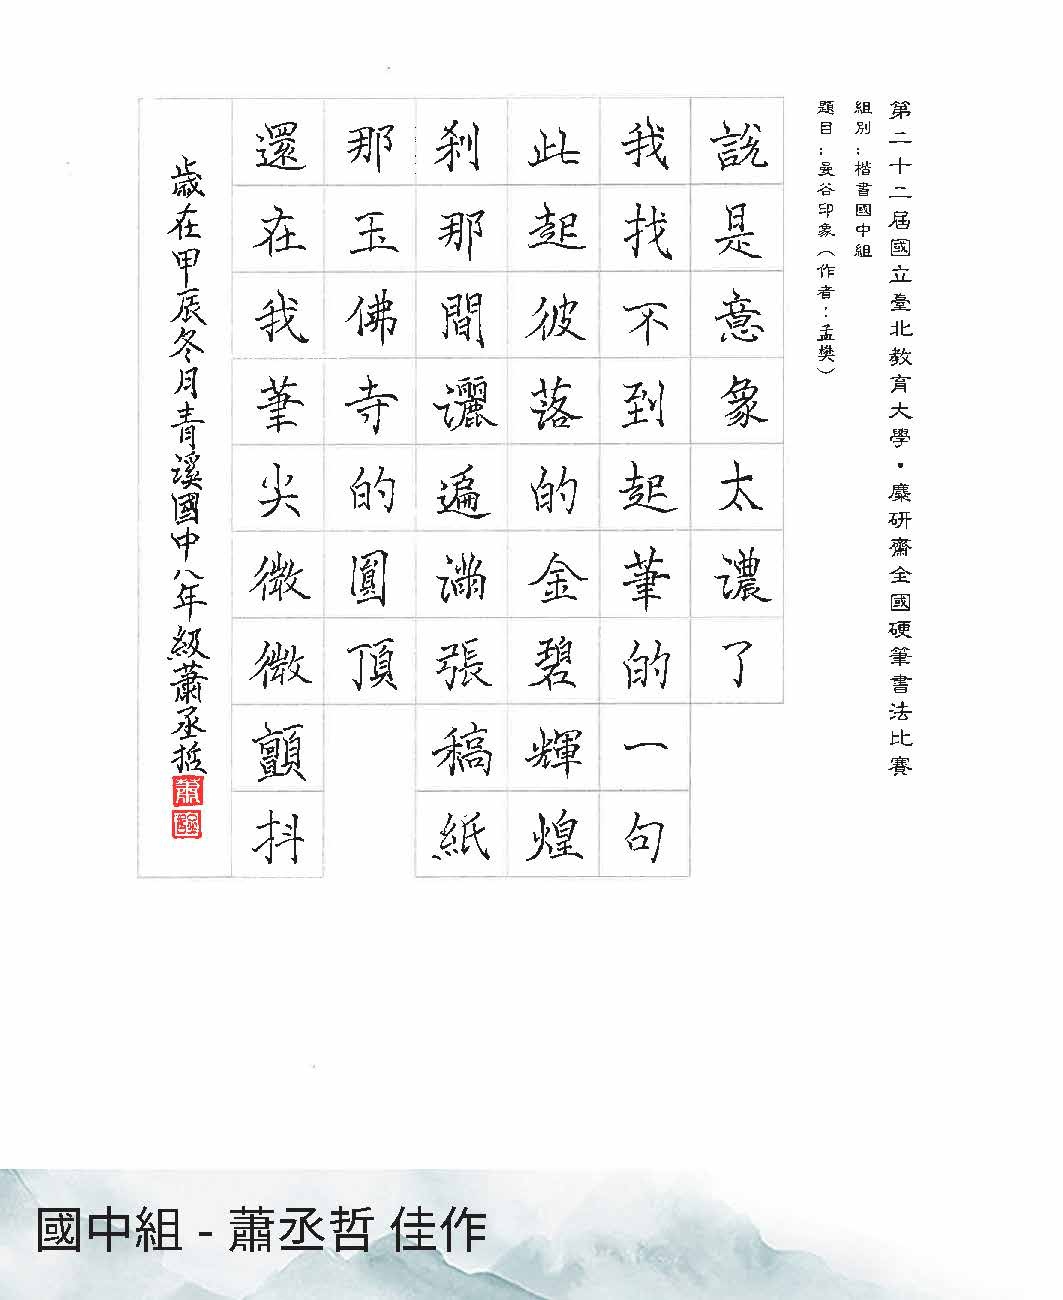 第二十二屆國立臺北教育大學・麋研齋全國硬筆書法比賽
組別：楷書國中組
題目：曼谷印象（作者：孟樊）
說是意象太濃了
我找不到起筆的一句
此起彼落的金碧輝煌
剎那間灑遍滿張稿紙
那玉佛寺的圓頂
還在我筆尖微微顫抖
歲在甲辰冬月青溪國中八年級蕭丞哲
國中組 - 蕭丞哲 佳作